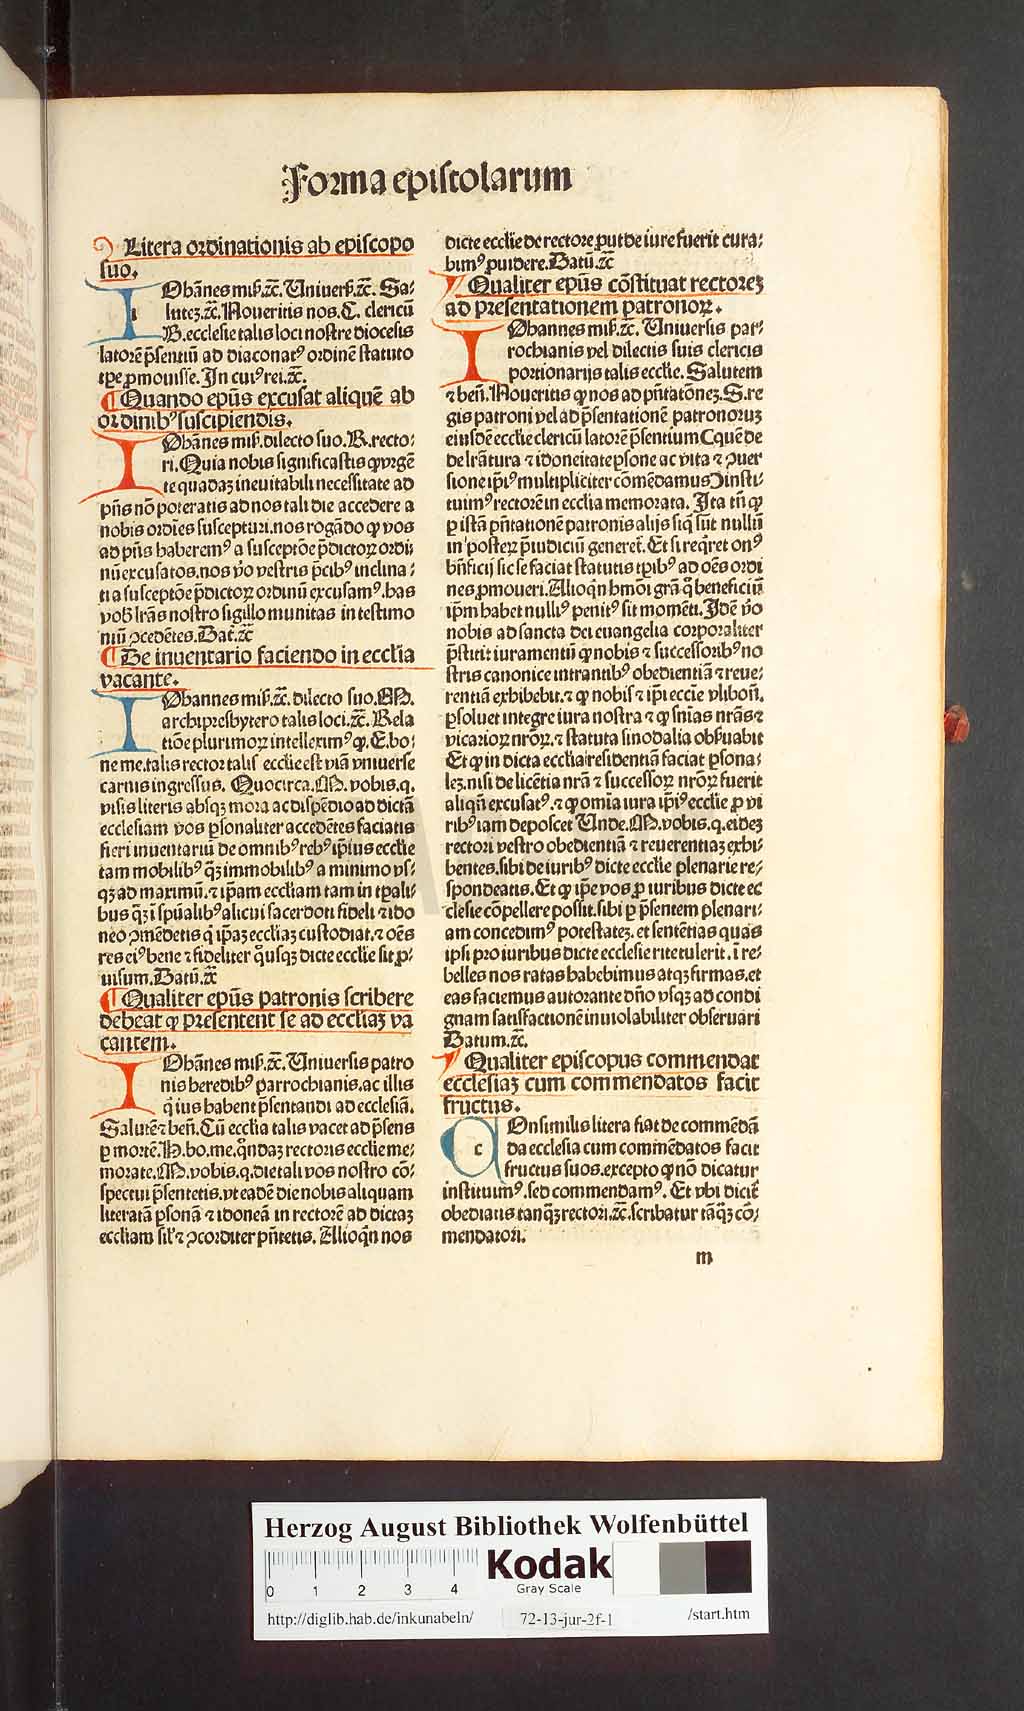 Forma epistolarum
Litera ordinationis ab episcopo
suo.
IOhānes miſ. ⁊c̄. Uniuerſ. ⁊c̄. Sa⸗
lutez. ⁊c̄. Noueritis nos. C. clericū
B. ecclesie talis loci nostre diocesis
latorē p̄sentiū ad diaconatꝰ ordinē statuto
tp̄e ꝓmouisse. In cuiꝰ rei. ⁊c̄.
¶ Quando ep̄us excusat aliquē ab
ordinibꝰ suscipiendis.
IOhānes miſ. dilecto suo. B. recto⸗
ri. Quia nobis significastis ꝙ vrgē
te quadaꝫ ineuitabili necessitate ad
pn̄s nō poteratis ad nos tali die accedere a
nobis ordīes suscepturi. nos rogādo ꝙ vos
ad pn̄s haberemꝰ a susceptōe p̄dictoꝝ ordi
nū excusatos. nos ṽo vestris p̄cibꝰ inclina⸗
ti a susceptōe p̄dictoꝝ ordinū excusamꝰ. has
vob̄ lr̄as nostro sigillo munitas in testimo
niū ꝯcedētes. Dat̄. ⁊c̄
¶ De inuentario faciendo in eccl̄ia
vacante.
IOhannes miſ. ⁊c̄. dilecto suo. M.
archipresbytero talis loci. ⁊c̄. Rela
tiōe plurimoꝝ intelleximꝰ ꝙ. E. bo⸗
ne me. talis rector talis eccl̄ie est viā vniuerse
carnis ingressus. Quocirca. M. vobis. q.
visis literis absqꝫ mora ac dispēdio ad dictā
ecclesiam vos ꝑsonaliter accedētes faciatis
fieri inuentariū de omnibꝰ rebꝰ ip̄ius eccl̄ie
tam mobilibꝰ qꝫ immobilibꝰ a minimo vs⸗
qꝫ ad maximū. ⁊ ip̄am eccl̄iam tam in tp̄ali⸗
bus qꝫ ī sp̄ualibꝰ alicui sacerdoti fideli ⁊ ido
neo ꝯmēdetis q̇ ip̄aꝫ eccl̄iaꝫ custodiat. ⁊ oēs
res eiꝰ bene ⁊ fideliter q̊usqꝫ dicte eccl̄ie sit ꝓ⸗
uisum. Datū. ⁊c̄
¶ Qualiter ep̄us patronis scribere
debeat ꝙ presentent se ad eccl̄iaꝫ va
cantem.
IOhānes miſ. ⁊c̄. Uniuersis patro
nis heredibꝰ ꝑarrochianis. ac illis
q̇ ius habent p̄sentandi ad ecclesiā.
Salutē ⁊ ben̄. Cū eccl̄ia talis vacet ad p̄sens
ꝑ mortē. H. bo. me. q̊ndaꝫ rectoris eccl̄ie me⸗
morate. M. vobis. q. die tali vos nostro cō⸗
spectui p̄sentetis. vt eadē die nobis aliquam
literatā ꝑsonā ⁊ idoneā in rectorē ad dictaꝫ
eccl̄iam sil̄r ⁊ ꝯcorditer pn̄tetis. Alioqn̄ nos
dicte eccl̄ie de rectore ꝓut de iure fuerit cura⸗
bimꝰ ꝓuidere. Datū. ⁊c̄
Qualiter ep̄us cōstituat rectoreꝫ
ad presentationem patronoꝝ.
IOhannes miſ. ⁊c̄. Uniuersis par⸗
rochianis vel dilectis suis clericis
portionarijs talis eccl̄ie. Salutem
⁊ ben̄. Noueritis ꝙ nos ad pn̄tatōneꝫ. S. re
gis patroni vel ad p̄sentationē patronoruꝫ
eiusdē eccl̄ie clericū latorē p̄sentium C quē de
de lr̄atura ⁊ idoneitate ꝑsone ac vita ⁊ ꝯuer
sione ip̄iꝰ multipliciter cōmēdamus insti⸗
tuimꝰ rectorē in eccl̄ia memorata. Ita tn̄ ꝙ
ꝑ istā pn̄tationē patronis alijs siq̇ sūt nullū
in posteꝝ p̄iudiciū generet̄. Et si req̇ret onꝰ
bn̄ficij sic se faciat statutis tꝑibꝰ ad oēs ordi
nes ꝓmoueri. Alioqn̄ hmōi gr̄a q̄ beneficiū
ip̄m habet nulliꝰ penitꝰ sit momēti. Idē ṽo
nobis ad sancta dei euangelia corporaliter
p̄stitit iuramentū ꝙ nobis ⁊ successoribꝰ no
stris canonice intrantibꝰ obedientiā ⁊ reue⸗
rentiā exhibebit. ⁊ ꝙ nobis ⁊ ip̄i eccie vlibon̄.
ꝑsoluet integre iura nostra ⁊ ꝙ sn̄ias nr̄as ⁊
vicarioꝝ nr̄oꝝ. ⁊ statuta sinodalia obẜuabit
Et ꝙ in dicta eccl̄ia residentiā faciat ꝑsona⸗
leꝫ. nisi de licētia nr̄a ⁊ successoꝝ nr̄oꝝ fuerit
aliqn̄ excusatꝰ. ⁊ ꝙ omia iura ip̄iꝰ eccl̄ie ꝓ vi
ribꝰ iam deposcet Unde. M. vobis. q. eideꝫ
rectori vestro obedientiā ⁊ reuerentiaꝫ exhi⸗
bentes. sibi de iuribꝰ dicte eccl̄ie plenarie re⸗
spondeatis. Et ꝙ ip̄e vos ꝓ iuribus dicte ec
clesie cōpellere possit. sibi ꝑ p̄sentem plenari⸗
am concedimꝰ potestateꝫ. et sentētias quas
ipsi pro iuribus dicte ecclesie rite tulerit. ī re⸗
belles nos ratas habebimus atqꝫ firmas. et
eas faciemus autorante dn̄o vsqꝫ ad condi
gnam satisfactionē inuiolabiliter obseruari
Datum. ⁊c̄.
Qualiter episcopus commendat
ecclesiaꝫ cum commendatos facit
fructus.
COnsimilis litera fiat de commēdā
da ecclesia cum commēdatos facit
fructus suos. excepto ꝙ nō dicatur
instituimꝰ. sed commendamꝰ. Et vbi dicit̄
obediatis tanqꝫ rectori. ⁊c̄. scribatur tāqꝫ cō⸗
mendatori.
m
Herzog August Bibliothek Wolfenbüttel
0 1 2 3 4
Kodak
Gray Scale
http://diglib.hab.de/inkunabeln/ 72-13-jur-2f-1 /start.htm
HAB